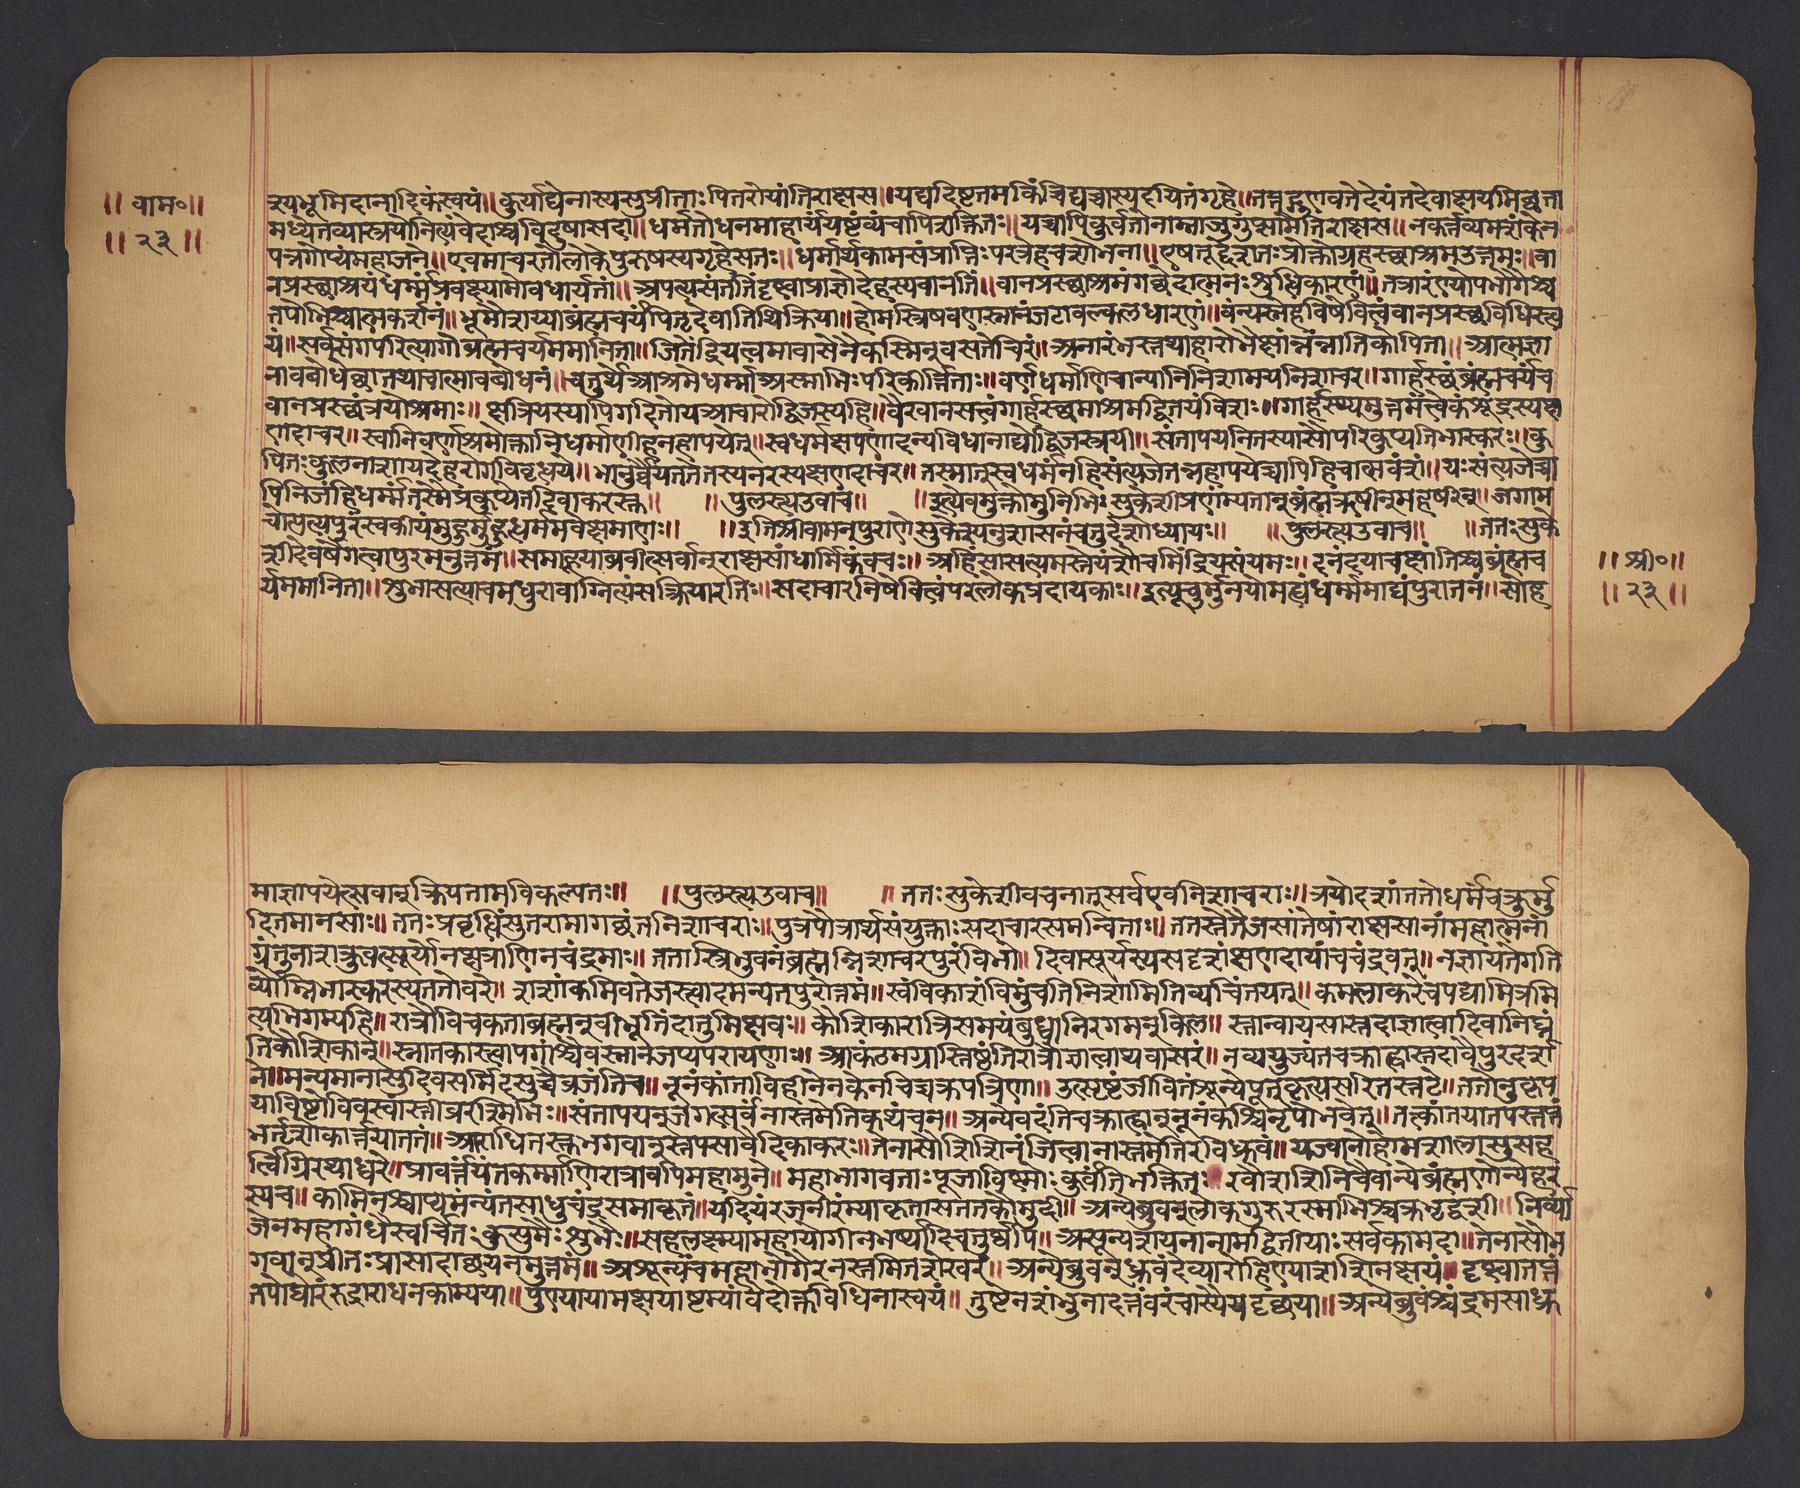 ॥ वाम०॥
॥ २३ ॥
त्स्यभूमिदानादिकंस्वयं॥ कुर्याद्येनास्यसुप्रीताः पितरोयांतिराक्षस॥ यद्यदिष्टतमकिंचिद्यच्चास्यदयितंगृहे॥ तत्तद्गुणवतेदेयंतदेवाक्षयमिच्छता
मध्येतव्यास्त्रयीनित्यंवेदाश्चविदुषासदा॥ धर्मतोधनमाहार्यंयष्टंव्यंचापिशक्तितः॥ यच्चापिकुर्वतोनात्माजुगुप्सामेतिराक्षस॥ नकर्त्तव्यमशंकेन
पन्नगोप्यंमहाजने॥ एवमाचरतोलोकेपुरुषस्यगृहेसतः॥ धर्मार्थकामसंप्राप्तिःपरत्रेहचशोभना॥ एषतूद्देशतः प्रोक्तोगृहस्छाश्रमउत्तमः॥ वा
नप्रस्छाश्रयंधर्म्मंप्रवक्ष्यामोवधार्यतां॥ अपत्यसंततिंदृष्ट्वाप्राज्ञोदेहस्यवानतिं॥ वानप्रस्छाश्रमंगच्छेदात्मनःशुधिकारणं॥ तत्रारंण्योपभोगैश्च
तपोभिश्चात्मकर्शनं॥ भूमौशय्याब्रह्मचर्यंपितृदेवातिथिक्रिया॥ होमस्त्रिषवणस्नानंजटावल्कलधारणं॥ वंन्यस्नेहविषेवित्वंवानप्रस्छविधिस्त्व
यं॥ सर्वसंगपरित्यागोब्रह्मचर्यममानिता॥ जितेंद्रियत्वमावासेनैकस्मिन्वसतेचिरं॥ अनारंभस्तथाहारोभैक्षांन्नंन्नातिकोपिता॥ आत्मज्ञा
नावबोधेच्छातथाचात्मावबोधनं॥ चतुर्थेआश्रमेधर्म्माअस्माभिःपरिकीर्त्तिताः॥ वर्णधर्माणिचान्यानिनिशामयनिशाचर॥ गार्हस्छंब्रह्मचर्यंच
वानप्रस्छंत्रयोश्रमाः॥ क्षत्रियस्यापिगदितायआचारोद्विजस्यहि॥ वैखानसत्वंगार्हस्छमाश्रमद्वितयंविशः॥ गार्हस्थ्यमुत्तमंत्वेकंशूद्रस्यक्ष
णदाचर॥ स्वानिवर्णाश्रमोक्तानिधर्माणीहनहापयेत्॥ स्वधर्मक्षपणादन्यविधानाद्योद्विजस्त्रयी॥ संतापयनितस्यासौपरिकुप्यतिभास्करः॥ कु
पितःकुलनाशायदेहरोगविवृध्दये॥ भानुर्वैयततेतस्यनरस्यक्षणदाचर॥ तस्मात्स्वधर्मंनहिसंत्यजेतन्नहापयेच्चापिहिचात्मवंशं॥ यःसंत्यजेच्चा
पिनिजंहिधर्म्मंतस्मैप्रकुप्येतदिवाकरस्क्त॥ ॥ पुलस्त्यउवाच॥ ॥ इत्येवमुक्तोमुनिभिः सुकेशीप्रणम्यतान्ब्रह्मऋषीन्महर्षिन्॥ जगाम
चोत्पत्यपुरंस्वकीयंमुहुर्मुहुर्धर्ममवेक्षमाणः॥ ॥ इतिश्रीवामनपुराणेसुकेश्यनुशासनंचतुर्दशोध्यायः॥ ॥ पुलस्त्यउवाच॥ ॥ ततःसुके
शीदेवर्षेगत्वापुरमनुत्तमं॥ समाहूयाब्रवीत्सर्वान्राक्षसांधार्मिकंवचः॥ अहिंसासत्यमस्तेयंशौचमिंद्रियसंयमः॥ दानंदयाचक्षांतिश्चब्रह्मच
र्यममानिता॥ शुभासत्याचमधुरावाग्नित्यंसत्क्रियारतिः॥ सदाचारनिषेवित्वंपरलोकप्रदायकाः॥ इत्यूचुर्मुनयोमह्यंधर्म्ममाद्यंपुरातनं॥ सोह
॥ श्री०॥
॥ २३ ॥
माज्ञापयेत्सर्वान्क्रियतामविकल्पतः॥ ॥ पुलस्त्यउवाच॥ ॥ ततः सुकेशीवचनात्सर्वएवनिशाचराः॥ त्रयोदशांततोधर्मंचक्रुर्मु
दितमानसाः॥ ततःप्रवृध्धिंसुतरामागच्छंतनिशाचराः॥ पुत्रपौत्रार्थसंयुक्ताःसदाचारसमन्विताः॥ ततस्तेतेजसांतेषांराक्षसानांमहात्मनां
गंतुनाशक्नुवत्सूर्योनक्षत्राणिनचंद्रमाः॥ ततास्त्रिभुवनंब्रह्मन्निशाचरपुरंविभो॥ दिवासूर्यस्यसदृशंक्षणदायांचचंद्रवत्॥ नज्ञायतेगति
र्व्योम्निभास्करस्यततोंवरे॥ शशांकमिवतेजस्त्वादमन्यतपुरोत्तमं॥ स्वंविकाशंविमुंचतिनिशामितिव्यचिंतयत्॥ कमलाकरेचपद्मामित्रमि
त्यभिगम्यहि॥ रात्रौविचकताब्रह्मन्वीभूतिंदातुमिक्षवः॥ कौशिकारात्रिसमयंबुध्द्वानिरगमन्किल॥ स्नान्वायसास्तदाज्ञात्वादिवानिघ्नं
तिकौशिकान्॥ स्नातकास्त्वापगांश्चैवस्नानजप्यपरायणाः॥ आकंठमग्रास्तिष्ठंतिरात्रौज्ञात्वाथवासरं॥ नव्ययुज्यंतचक्राह्वास्तदावैपुरदर्श
ने॥ मन्यमानासुदिवसमिदमुच्चैव्रजंतिच॥ नूनंकांताविहीनेनकेनचिच्चक्रपत्रिणा॥ उत्सृष्टंजीवितंशून्येफूत्कृत्यसरितस्तटे॥ ततोनुकृप
याविष्टोविवस्वांस्तीव्ररश्मिभिः॥ संतापयन्जगत्सर्वंनास्तमेतिकथंचन॥ अन्येवदंतिचक्राह्वान्नूनंकश्चिन्नृपोभवेत्॥ तत्कांतयातपस्तप्तं
भर्तृशोकार्त्तयाततं॥ आराधितस्तुभगवान्स्तपसावैदिवाकरः॥ तेनासौशशिनंजित्वानास्तमेतिरविध्रुवं॥ यज्वानोहोमशालासुसह
र्त्विग्भिरथाध्वरे॥ प्रावर्त्तयंतकर्म्माणिरात्रावपिमहामुने॥ महाभागवताःपूजाविष्णोःकुर्वंतिभक्तितः॥ रवौशशिनिचैवान्येब्रह्मणोन्येहर
स्यच॥ कामिनश्चाप्यमंन्यंतसाधुचंद्रसमाकृतं॥ यदियंरजनीरंम्याकृतासततकौमुदी॥ अन्येब्रुवन्लोकगुरुरस्माभिश्चक्रभृद्वशी॥ निर्व्या
जेनमहागंधैरर्चितः कुसुमैः शुभैः॥ सहलक्ष्म्यामहायोगीनभष्यादिचतुर्ष्वपि॥ असून्यशयनानामद्वितीयाःसर्वकामदा॥ तेनासौभ
गवान्प्रीतःप्रासादाच्छयनमुत्तमं॥ अशून्यंचमहाभोगैरनस्तमितशेखरं॥ अन्येब्रुवन्ध्रुवंदेव्यारोहिण्याशशिनक्षयं॥ दृष्ट्वातप्तं
तपोघोरंरुद्राराधनकाम्यया॥ पुण्यायामक्षयाष्टम्यांवेदोक्तविधिनास्वयं॥ तुष्टेनशंभुनादत्तंवरंचास्यैयदृच्छया॥ अन्येब्रुवंश्चंद्रमसाध्रु